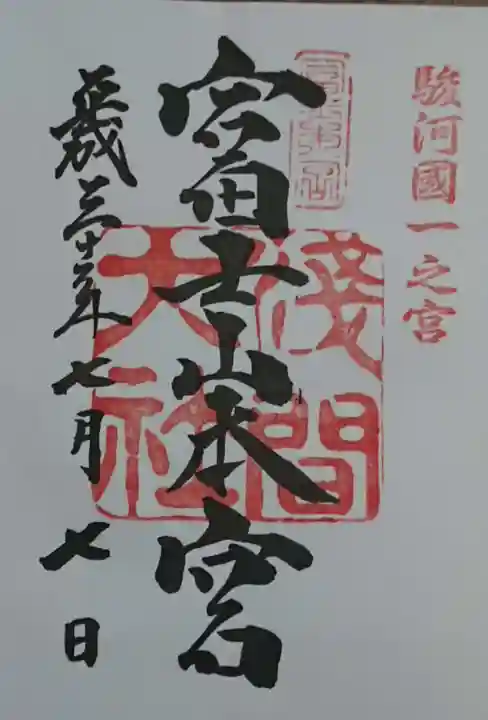 駿河國一之宮
富士山
富士山本宮
淺間
大社
平成三十年七月七日